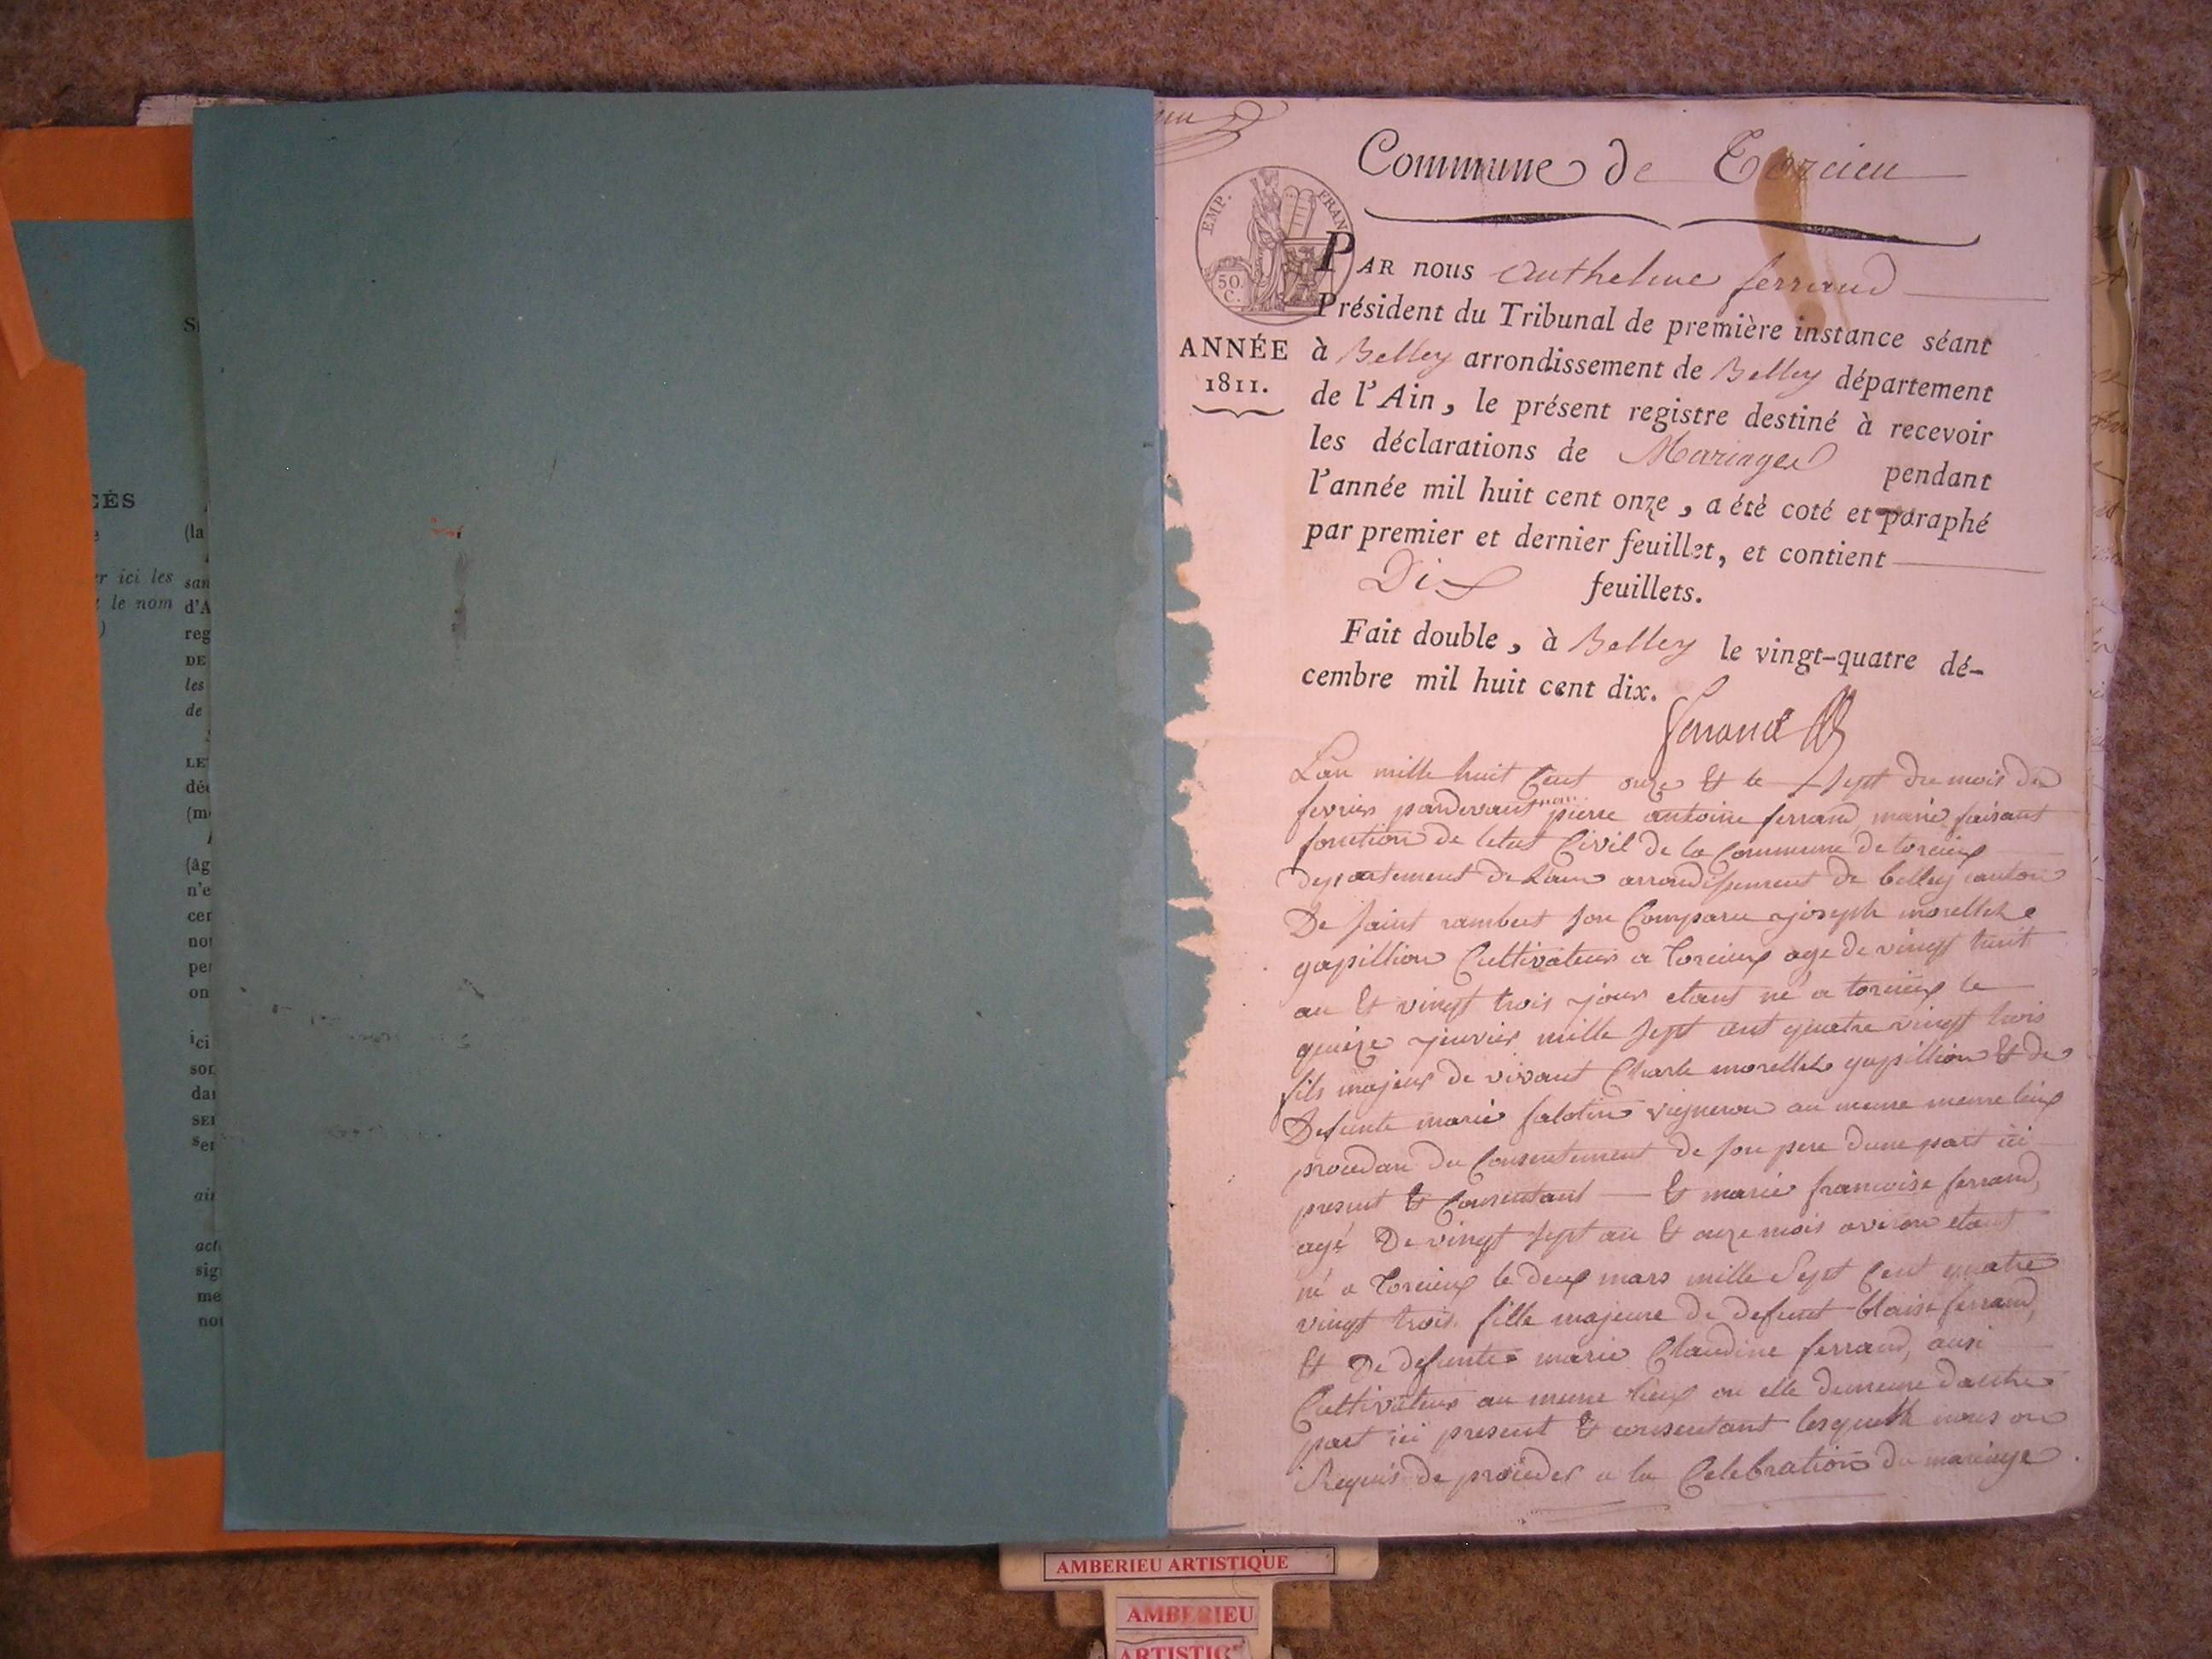 Commune de Torcieu
EMP. FRAN
50.
C.
ANNÉE
1811.
PAR nous Anthelme ferrand
Président du Tribunal de première instance séant
à Belley arrondissement de Belley département
de l'Ain, le présent registre destiné à recevoir
les déclarations de Mariages pendant
l'année mil huit cent onze, a été coté et paraphé
par premier et dernier feuillet, et contient
Dix feuillets.
Fait double, à Belley le vingt-quatre dé-
cembre mil huit cent dix.
ferrand
Lan mille huit Cent onze Et le Sept du mois de
fevrier pardevant nous pierre antoine ferrand, maire faisant
fonction de letat Civil de la Commune de torcieux
departement de Lain arrondissement de belley canton
De Saint rambert son Comparu joseph morellet
gapillion Cultivateur a Torcieux age de vingt huit
an Et vingt trois jours etant né a torcieux le
quinze janvier mille Sept cent quatre vingt trois
fils majeur de vivant Charle morellet gapillion Et de
Defunte marie falatin vigneron au meme meme lieux
procedan du Consentement de son pere dune part ici
present Et Consentant — Et marie francoise ferrand,
agé De vingt Sept an Et onze mois aviron etant
né a Torcieux le deux mars mille Sept Cent quatre
vingt trois fille majeure de defunt blaise ferrand,
Et De defunte marie Claudine ferrand, ausi
Cultivateur au meme lieux ou elle demeure dautre
part ici present Et consentant lesquelle nous on
Requis de proceder a la Celebration du mariage
ÉS
er ici les
le nom
)
(la
san
d'A
reg
DE
les
de
(m
(âg
n'e
cer
not
per
on
ici
son
dan
ser
ain
acte
sig
me
nor
AMBERIEU ARTISTIQUE
AMBERIEU
ARTISTIQ